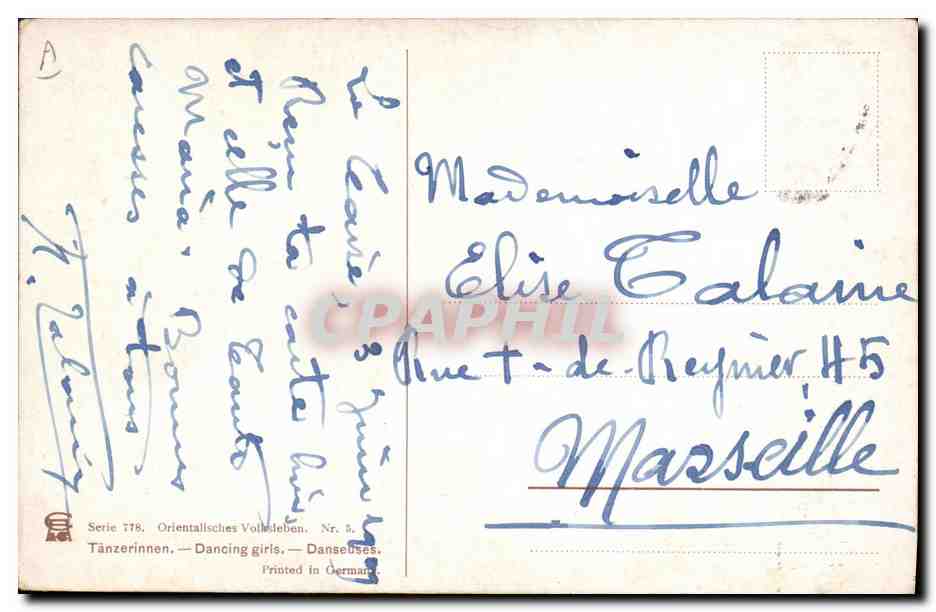 A
Le Caire, 3 Juin 1909
Reçu ta carte hier,
et celle de Tante
Maria. Bonnes
caresses à tous
Mademoiselle
Elise Talaine
Rue T-de-Reynier, 45
Marseille
CPAPHIL
Serie 778. Orientalisches Volksleben. Nr. 5.
Tänzerinnen. — Dancing girls. — Danseuses.
Printed in Germany.